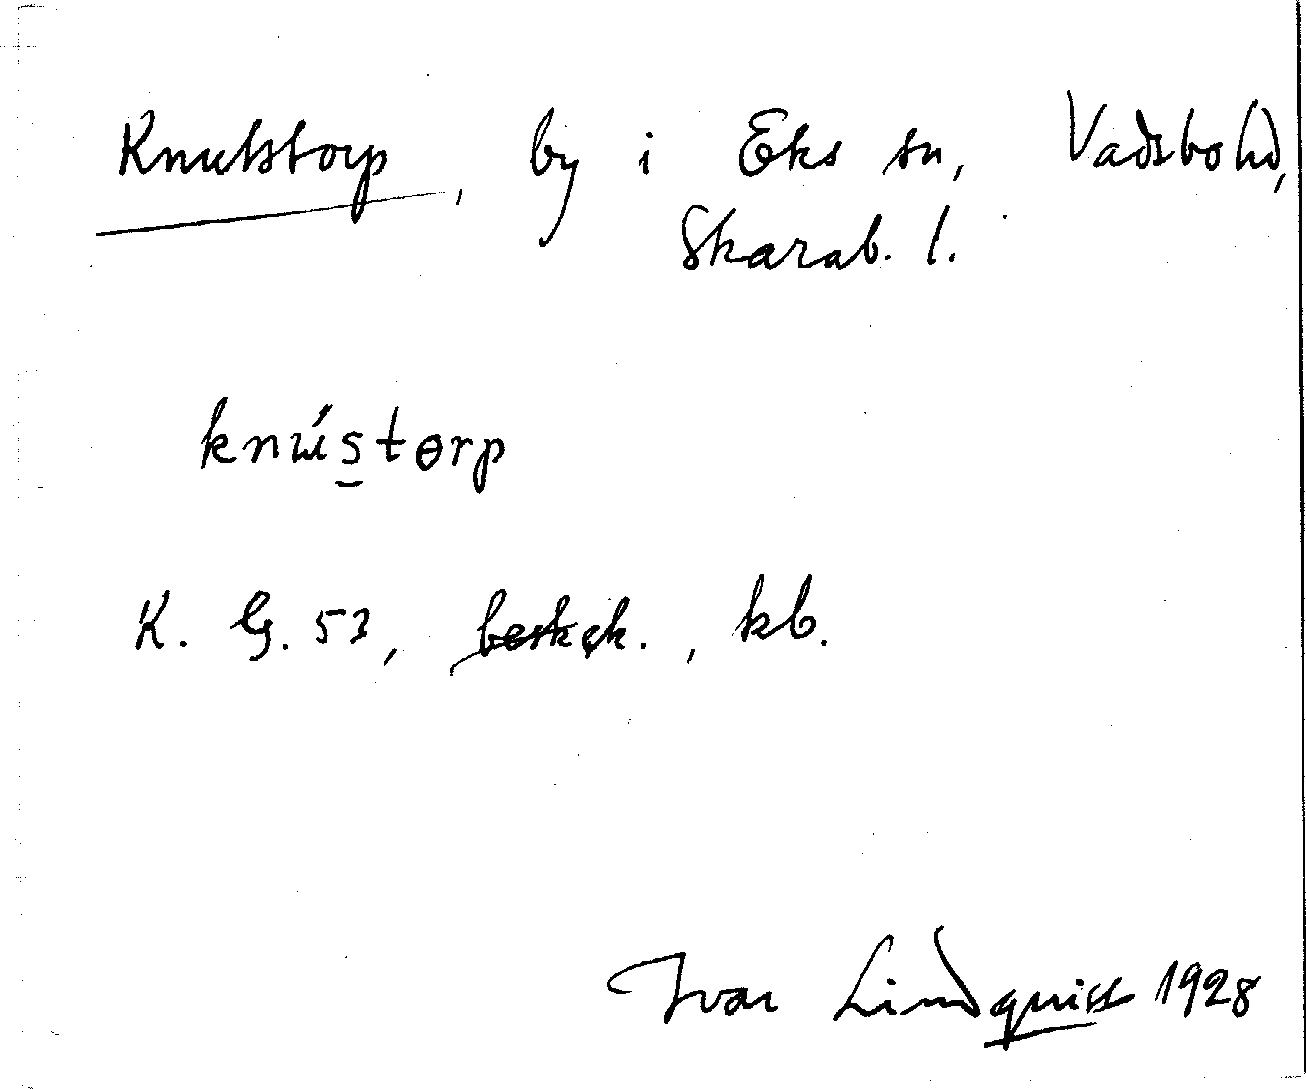 Knutstorp, by i Eks sn, Vadsbo hd,
Skarab. l.
knústorp
K. G. 53, kb.
Ivar Lindquist 1928